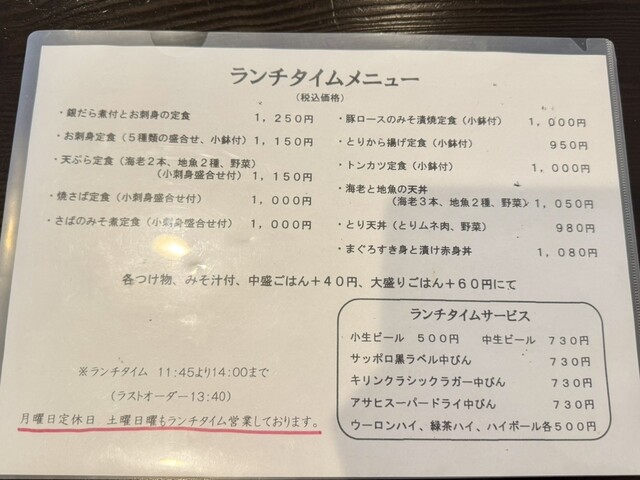 ランチタイムメニュー
(税込価格)
・銀だら煮付とお刺身の定食 1,250円
・お刺身定食(5種類の盛合せ、小鉢付) 1,150円
・天ぷら定食(海老2本、地魚2種、野菜)
(小刺身盛合せ付) 1,150円
・焼さば定食(小刺身盛合せ付) 1,000円
・さばのみそ煮定食(小刺身盛合せ付) 1,000円
・豚ロースのみそ漬焼定食(小鉢付) 1,000円
・とりから揚げ定食(小鉢付) 950円
・トンカツ定食(小鉢付) 1,000円
・海老と地魚の天丼
(海老3本、地魚2種、野菜) 1,050円
・とり天丼(とりムネ肉、野菜) 980円
・まぐろすき身と漬け赤身丼 1,080円
各つけ物、みそ汁付、中盛ごはん+40円、大盛りごはん+60円にて
※ランチタイム 11:45より14:00まで
(ラストオーダー13:40)
月曜日定休日 土曜日曜もランチタイム営業しております。
ランチタイムサービス
小生ビール 500円 中生ビール 730円
サッポロ黒ラベル中びん 730円
キリンクラシックラガー中びん 730円
アサヒスーパードライ中びん 730円
ウーロンハイ、緑茶ハイ、ハイボール各500円